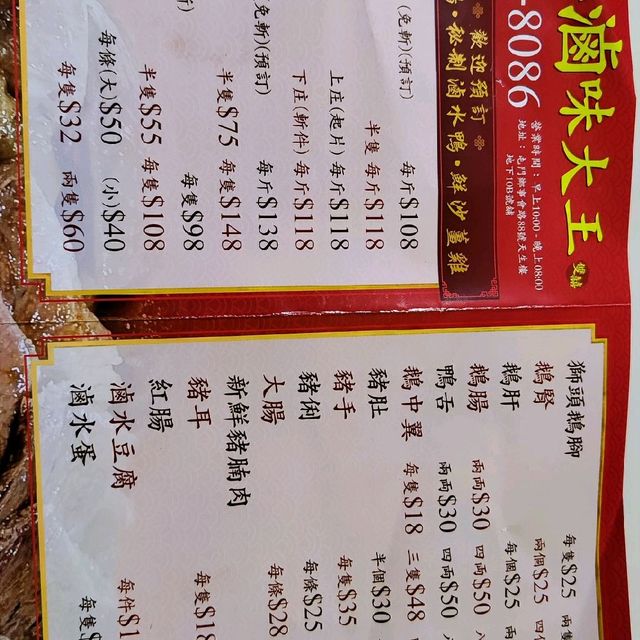 滷味大王
-8086
營業時間：早上10:00 - 晚上08:00
地址：屯門鄉事會路88號天生樓
地下10B號舖
歡迎預訂
·秘制滷水鴨·鮮沙薑雞
(免斬)(預訂) 每斤$108
半隻 每斤$118
上庄(起片) 每斤$118
下庄(斬件) 每斤$118
(免斬)(預訂) 每斤$138
半隻$75 每隻$148
每隻$98
半隻$55 每隻$108
每條(大)$50 (小)$40
每隻$32 兩隻$60
獅頭鵝腳 每隻$25 兩
鵝腎 兩個$25 四
鵝肝 每個$25 兩
鵝腸 兩両$30 四両$50
鴨舌 兩両$30 四両$50
鵝中翼 每隻$18 三隻$48
豬肚 半個$30
豬手 每隻$35
豬俐 每條$25
大腸 每條$28
新鮮豬腩肉
豬耳 每隻$18
紅腸
滷水豆腐 每件$1
滷水蛋 每隻$